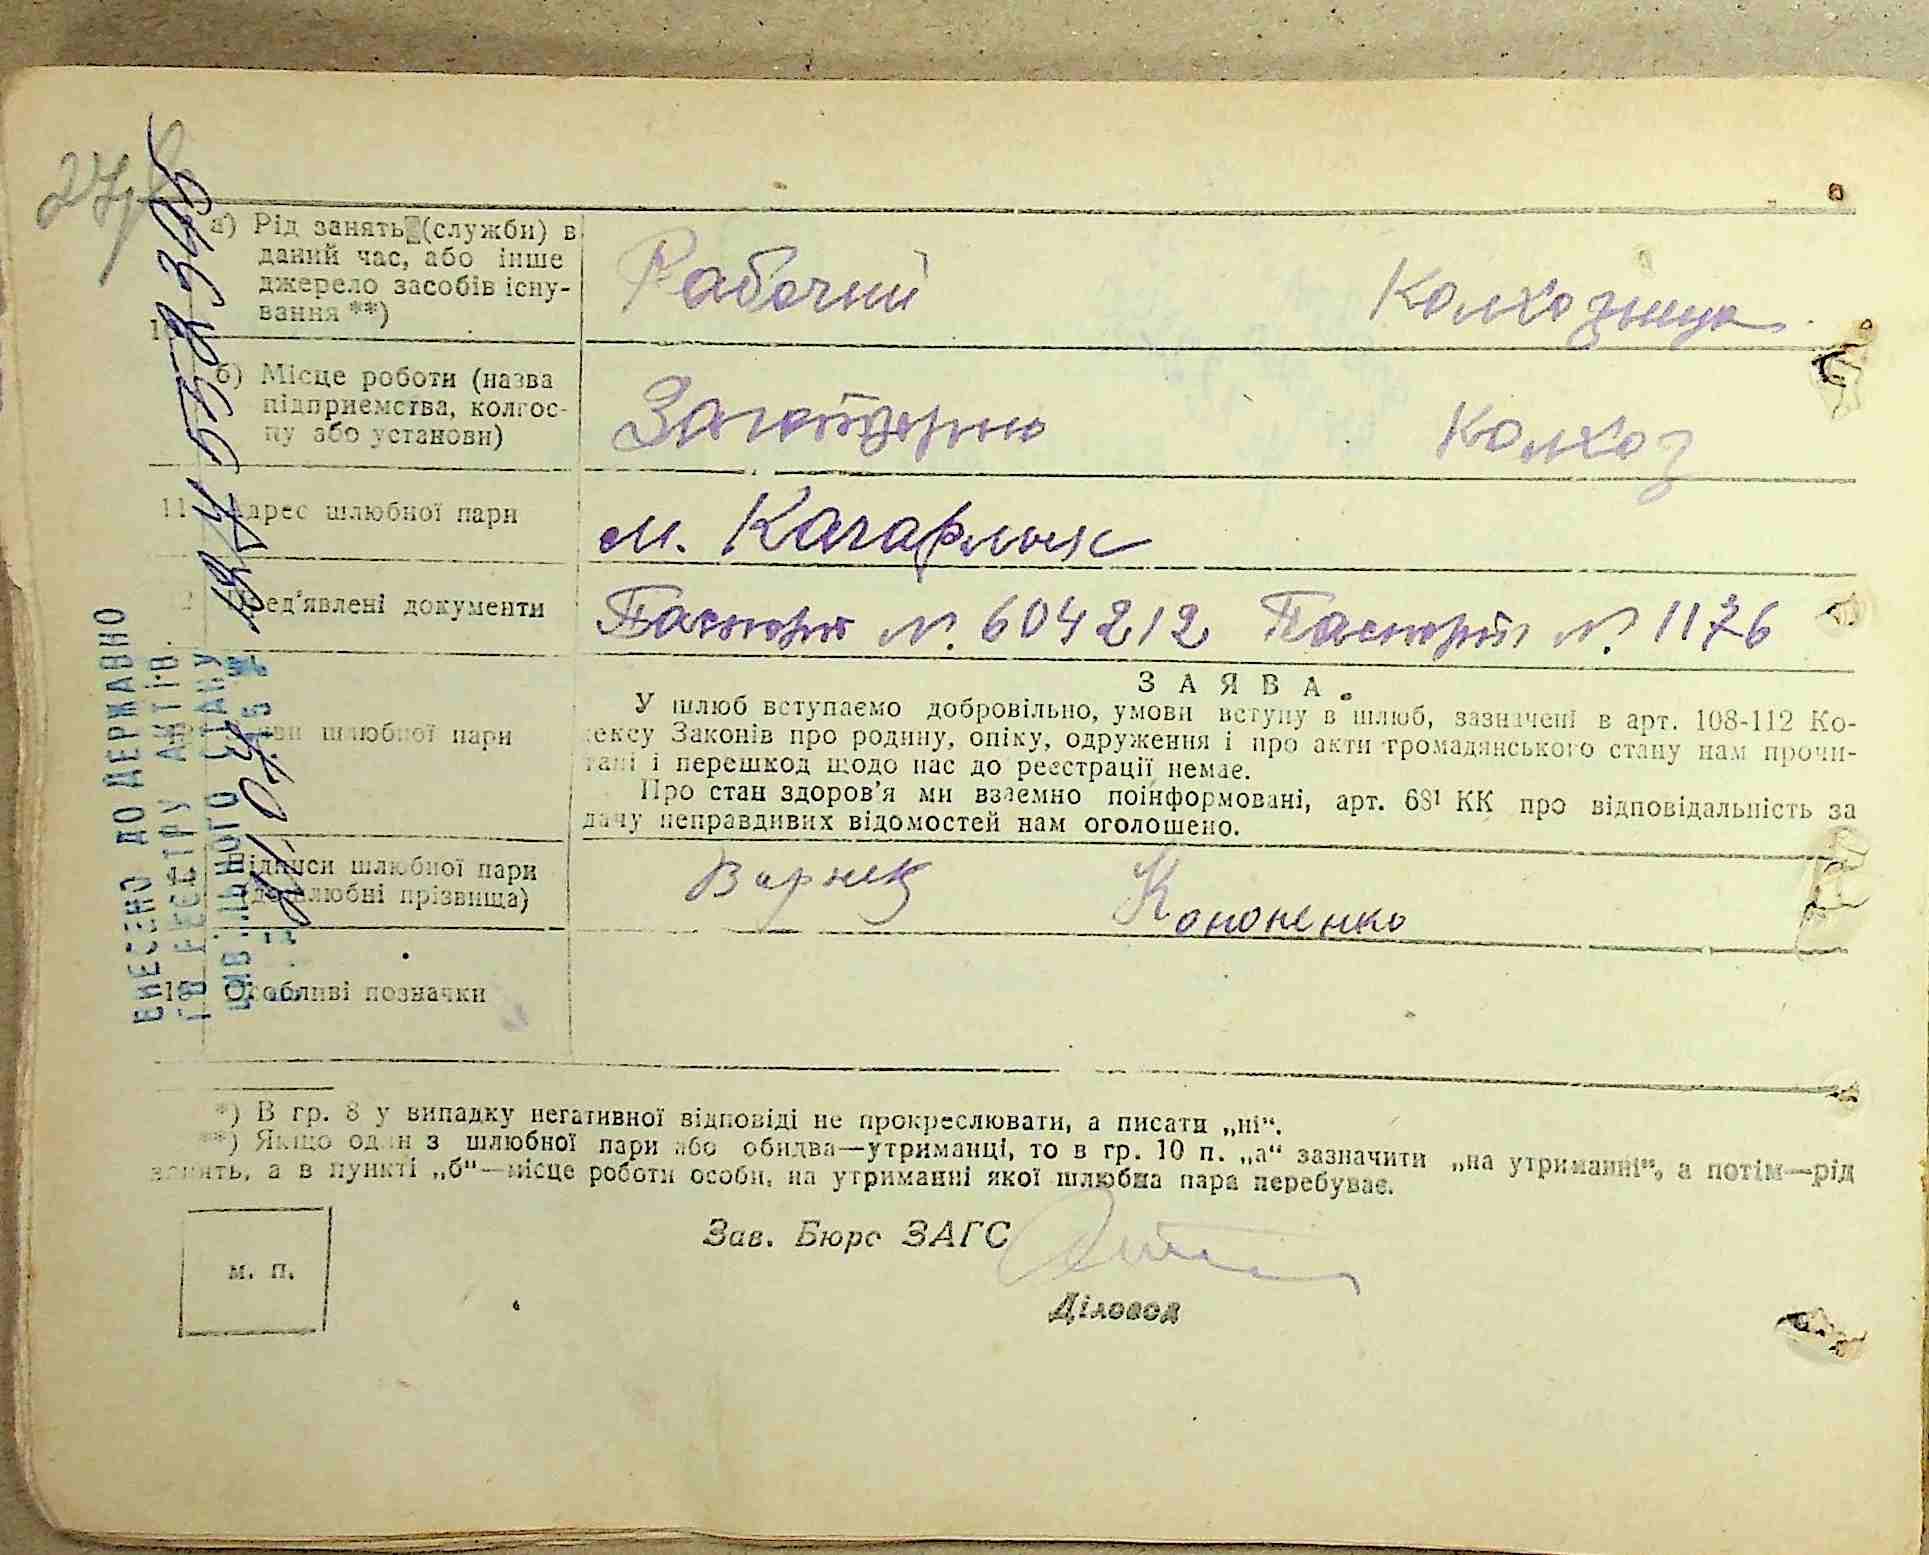 а) Рід занять (служби) в
даний час, або інше
джерело засобів існу-
вання **)
Рабочий Колхозница
б) Місце роботи (назва
підприємства, колгос-
пу або установи)
Заготзерно Колхоз
11 Адрес шлюбної пари
м. Кагарлык
Пред'явлені документи
Паспорт №. 604212 Паспорт №. 1176
шлюбної пари
ЗАЯВА.
У шлюб вступаємо добровільно, умови вступу в шлюб, зазначені в арт. 108-112 Ко-
дексу Законів про родину, опіку, одруження і про акти громадянського стану нам прочи-
тані і перешкод щодо нас до реєстрації немає.
Про стан здоров'я ми взаємно поінформовані, арт. 68¹ КК про відповідальність за
дачу неправдивих відомостей нам оголошено.
Підписи шлюбної пари
(дошлюбні прізвища)
Кононенко
Особливі позначки
ВНЕСЕНО ДО ДЕРЖАВНО
ГО РЕЄСТРУ АКТІВ
ЦИВІЛЬНОГО СТАНУ
*) В гр. 8 у випадку негативної відповіді не прокреслювати, а писати „ні“.
**) Якщо один з шлюбної пари або обидва—утриманці, то в гр. 10 п. „а“ зазначити „на утриманні“, а потім—рід
занять, а в пункті „б“—місце роботи особи, на утриманні якої шлюбна пара перебуває.
Зав. Бюро ЗАГС
м. п.
Діловод